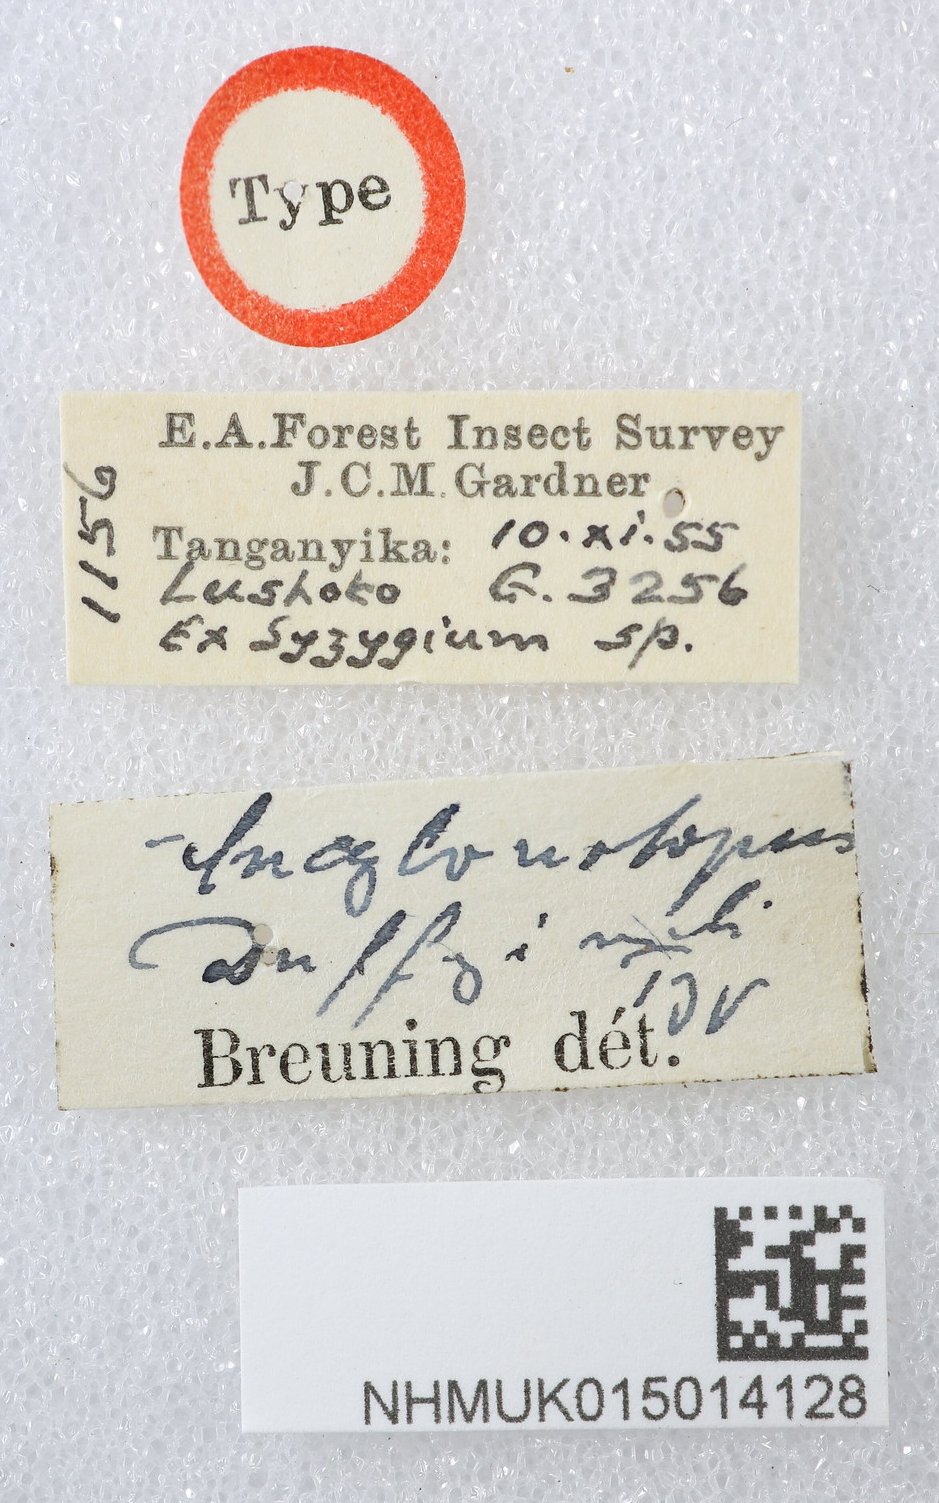 Type
E.A.Forest Insect Survey
J.C.M.Gardner
1156
Tanganyika: 10.xi.55
Lushoto G.3256
Ex Syzygium sp.
Ancylonotopus
Duffyi mihi
Breuning dét.
NHMUK015014128